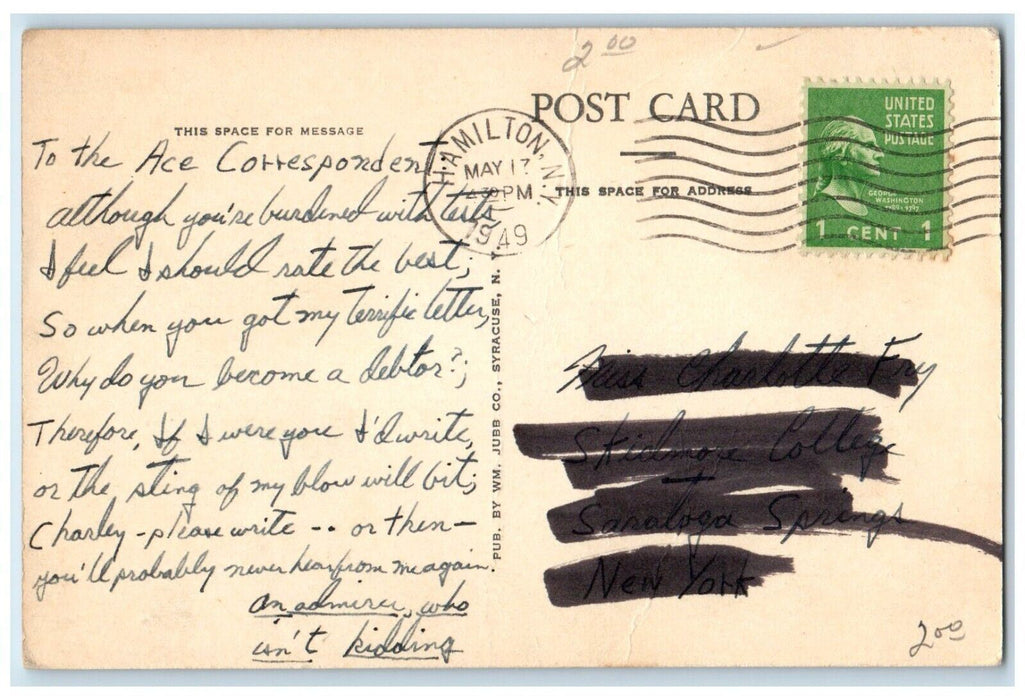 2.00
POST CARD
THIS SPACE FOR MESSAGE
THIS SPACE FOR ADDRESS
HAMILTON, N.Y.
MAY 17
4 30 PM
1949
UNITED
STATES
POSTAGE
GEORGE
WASHINGTON
1789-1797
1 CENT 1
To the Ace Correspondent
although you're burdened with tests
I feel I should rate the best;
So when you got my terrific letter,
Why do you become a debtor?;
Therefore, If I were you I'd write,
or the sting of my blow will bit;
Charley - please write -- or then -
you'll probably never hear from me again.
an admirer, who
isn't kidding
PUB. BY WM. JUBB CO., SYRACUSE, N. Y.
Miss Charlotte Fry
Skidmore College
Saratoga Springs
New York
2.00